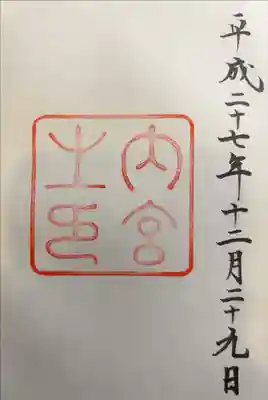 平成二十七年十二月二十九日
内宮
之印